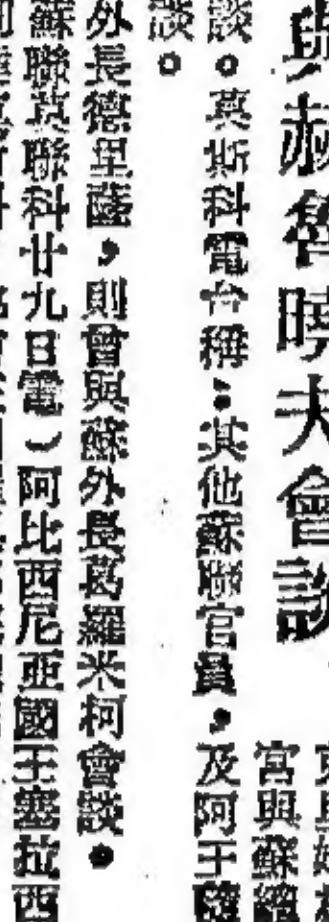 與赫魯曉夫會談
宮與蘇總
談。莫斯科電台稱:其他蘇聯官員,及阿王
談。
外長德里薩,則曾與蘇外長葛羅米柯會談。
蘇聯莫聯科廿九日電)阿比西尼亞國王塞拉西